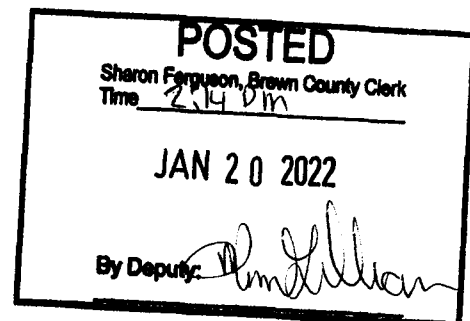 POSTED
Sharon Ferguson, Brown County Clerk
Time 2:14 pm
JAN 20 2022
By Deputy: